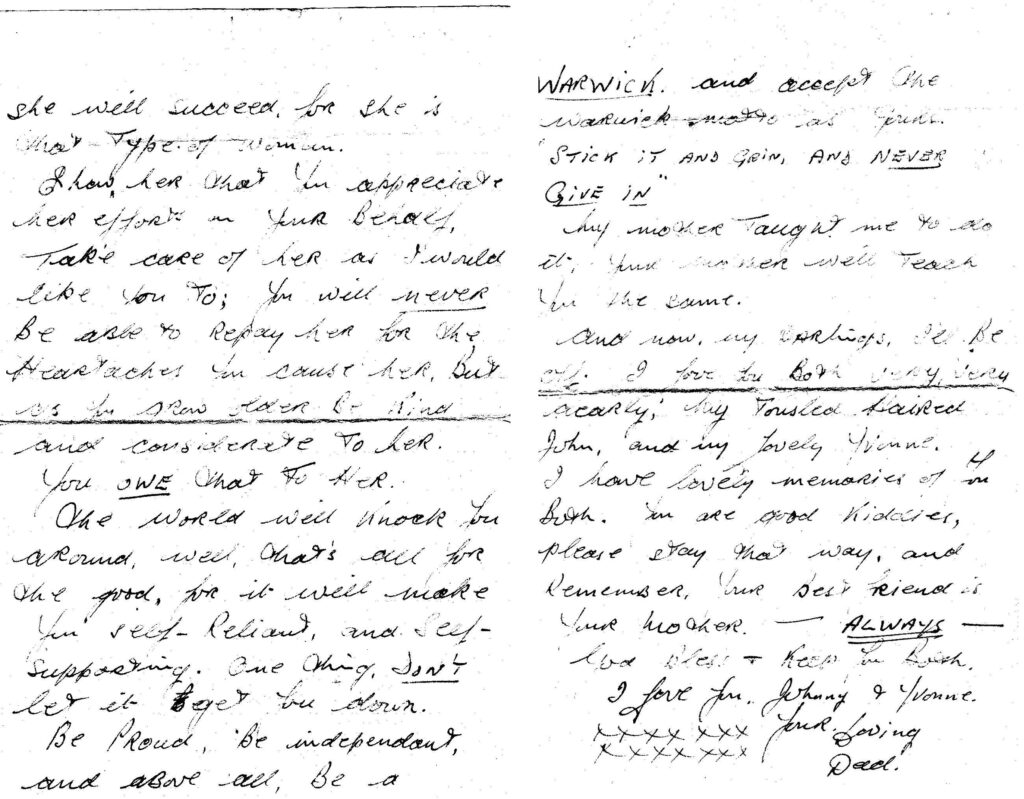 she will succeed, for she is
that Type of woman.
Show her that You appreciate
her efforts on Your Behalf,
Take care of her as I would
like You To; You will never
Be able to Repay her for the
Heartaches You cause her, But
as You grow older Be Kind
and considerate To her.
You OWE that To Her.
The world will Knock You
around, well, that's all for
the good, for it will make
You self-Reliant, and Self-
supporting. One thing, DON'T
let it get You down.
Be Proud, Be independant,
and above all, Be a
WARWICK. and accept the
Warwick motto as Yours.
"STICK IT AND GRIN, AND NEVER
GIVE IN"
My mother Taught me to do
it; Your mother will Teach
You the same.
And now, my Darlings, I'll Be
off. I love You Both very, very
dearly; My Tousled Haired
John, and my lovely Yvonne.
I have lovely memories of You
Both. You are good Kiddies,
please stay that way, and
Remember, Your best friend is
Your Mother. — ALWAYS —
God Bless + Keep You Both.
I love You, Johnny & Yvonne.
xxxx xxx Your Loving
xxxxxxx Dad.